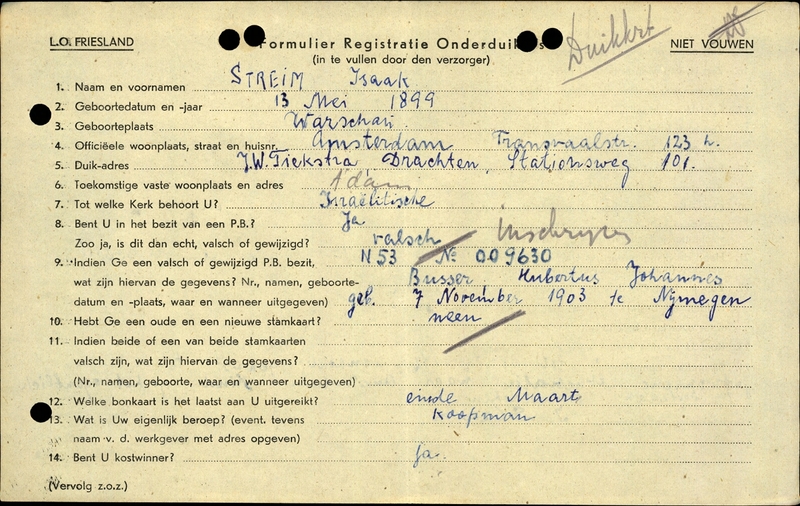 L.O. FRIESLAND
Formulier Registratie Onderduikers
(in te vullen door den verzorger)
NIET VOUWEN
1. Naam en voornamen STREIM Isaak
2. Geboortedatum en -jaar 13 Mei 1899
3. Geboorteplaats Warschau
4. Officiëele woonplaats, straat en huisnr. Amsterdam Transvaalstr. 123 h.
5. Duik-adres J.W. Tiekstra, Drachten, Stationsweg 101.
6. Toekomstige vaste woonplaats en adres A'dam
7. Tot welke Kerk behoort U? Israëlitische
8. Bent U in het bezit van een P.B.? Ja
Zoo ja, is dit dan echt, valsch of gewijzigd? valsch Inschrijven
9. Indien Ge een valsch of gewijzigd P.B. bezit, N 53 No 009630
wat zijn hiervan de gegevens? Nr., namen, geboorte- Busser Hubertus Johannes
datum en -plaats, waar en wanneer uitgegeven) geb. 7 November 1903 te Nijmegen
10. Hebt Ge een oude en een nieuwe stamkaart? neen
11. Indien beide of een van beide stamkaarten
valsch zijn, wat zijn hiervan de gegevens?
(Nr., namen, geboorte, waar en wanneer uitgegeven)
12. Welke bonkaart is het laatst aan U uitgereikt? einde Maart
13. Wat is Uw eigenlijk beroep? (event. tevens Koopman
naam v. d. werkgever met adres opgeven)
14. Bent U kostwinner? ja
(Vervolg z.o.z.)